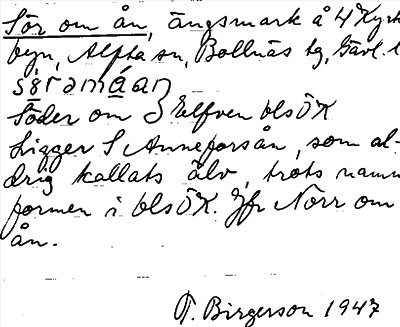 Sör om ån, ängsmark å 4 Kyrk
byn, Alfta sn, Bollnäs tg, Gävl. l
sö̀rəmáan
Söder om Elfven blsÖK
Ligger S Anneforsån, som al-
drig kallats älv, trots namn
formen i blsÖK. Jfr Norr om
ån.
T. Birgerson 1947